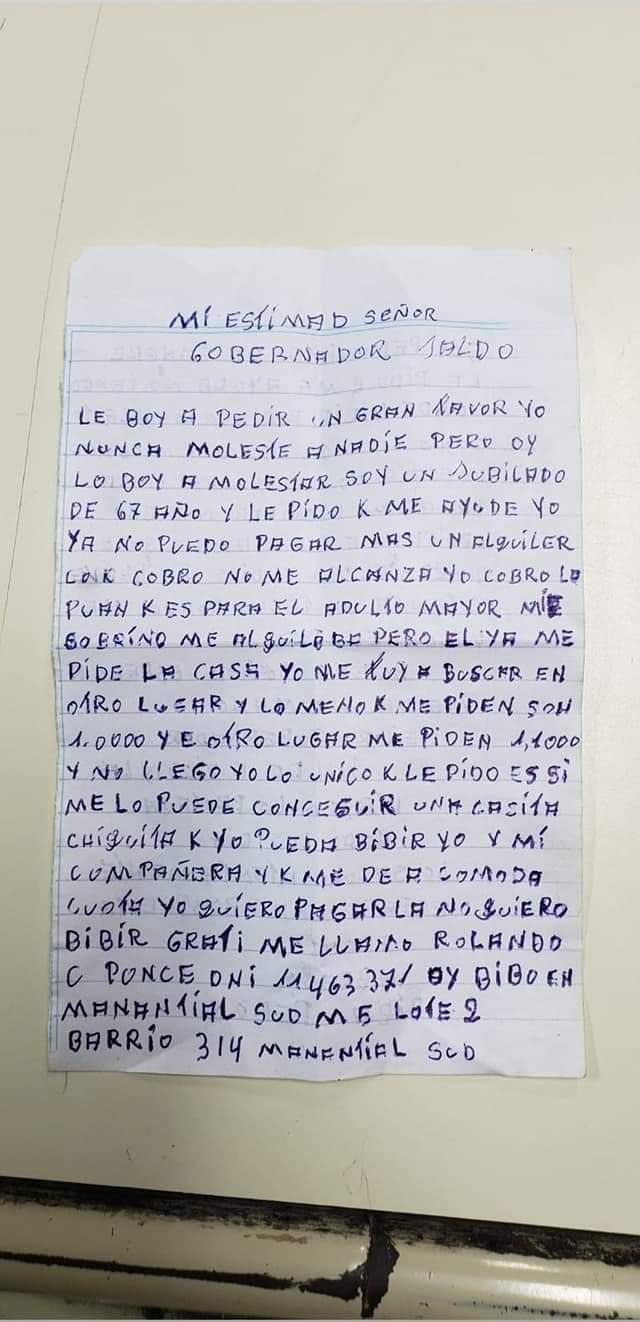 MI ESTIMAD SEÑOR
GOBERNADOR JALDO
LE BOY A PEDIR UN GRAN FAVOR YO
NUNCA MOLESTE A NADIE PERO OY
LO BOY A MOLESTAR SOY UN JUBILADO
DE 67 AÑO Y LE PIDO K ME AYUDE YO
YA NO PUEDO PAGAR MAS UN ALQUILER
LO K COBRO NO ME ALCANZA YO COBRO LA
PUAN K ES PARA EL ADULTO MAYOR MI
SOBRINO ME ALQUILABA PERO EL YA ME
PIDE LA CASA YO ME FUY A BUSCAR EN
OTRO LUGAR Y LO MENO K ME PIDEN SON
1.0000 Y E OTRO LUGAR ME PIDEN 1,1000
Y NO LLEGO YO LO UNICO K LE PIDO ES SI
ME LO PUEDE CONCEGUIR UNA CASITA
CHIQUITA K YO PUEDA BIBIR YO Y MI
COMPAÑERA Y K ME DE A COMODA
CUOTA YO QUIERO PAGARLA NO QUIERO
BIBIR GRATI ME LLAMO ROLANDO
C PONCE DNI 11463371 OY BIBO EN
MANANTIAL SUD M5 LOTE 2
BARRIO 314 MANANTIAL SUD